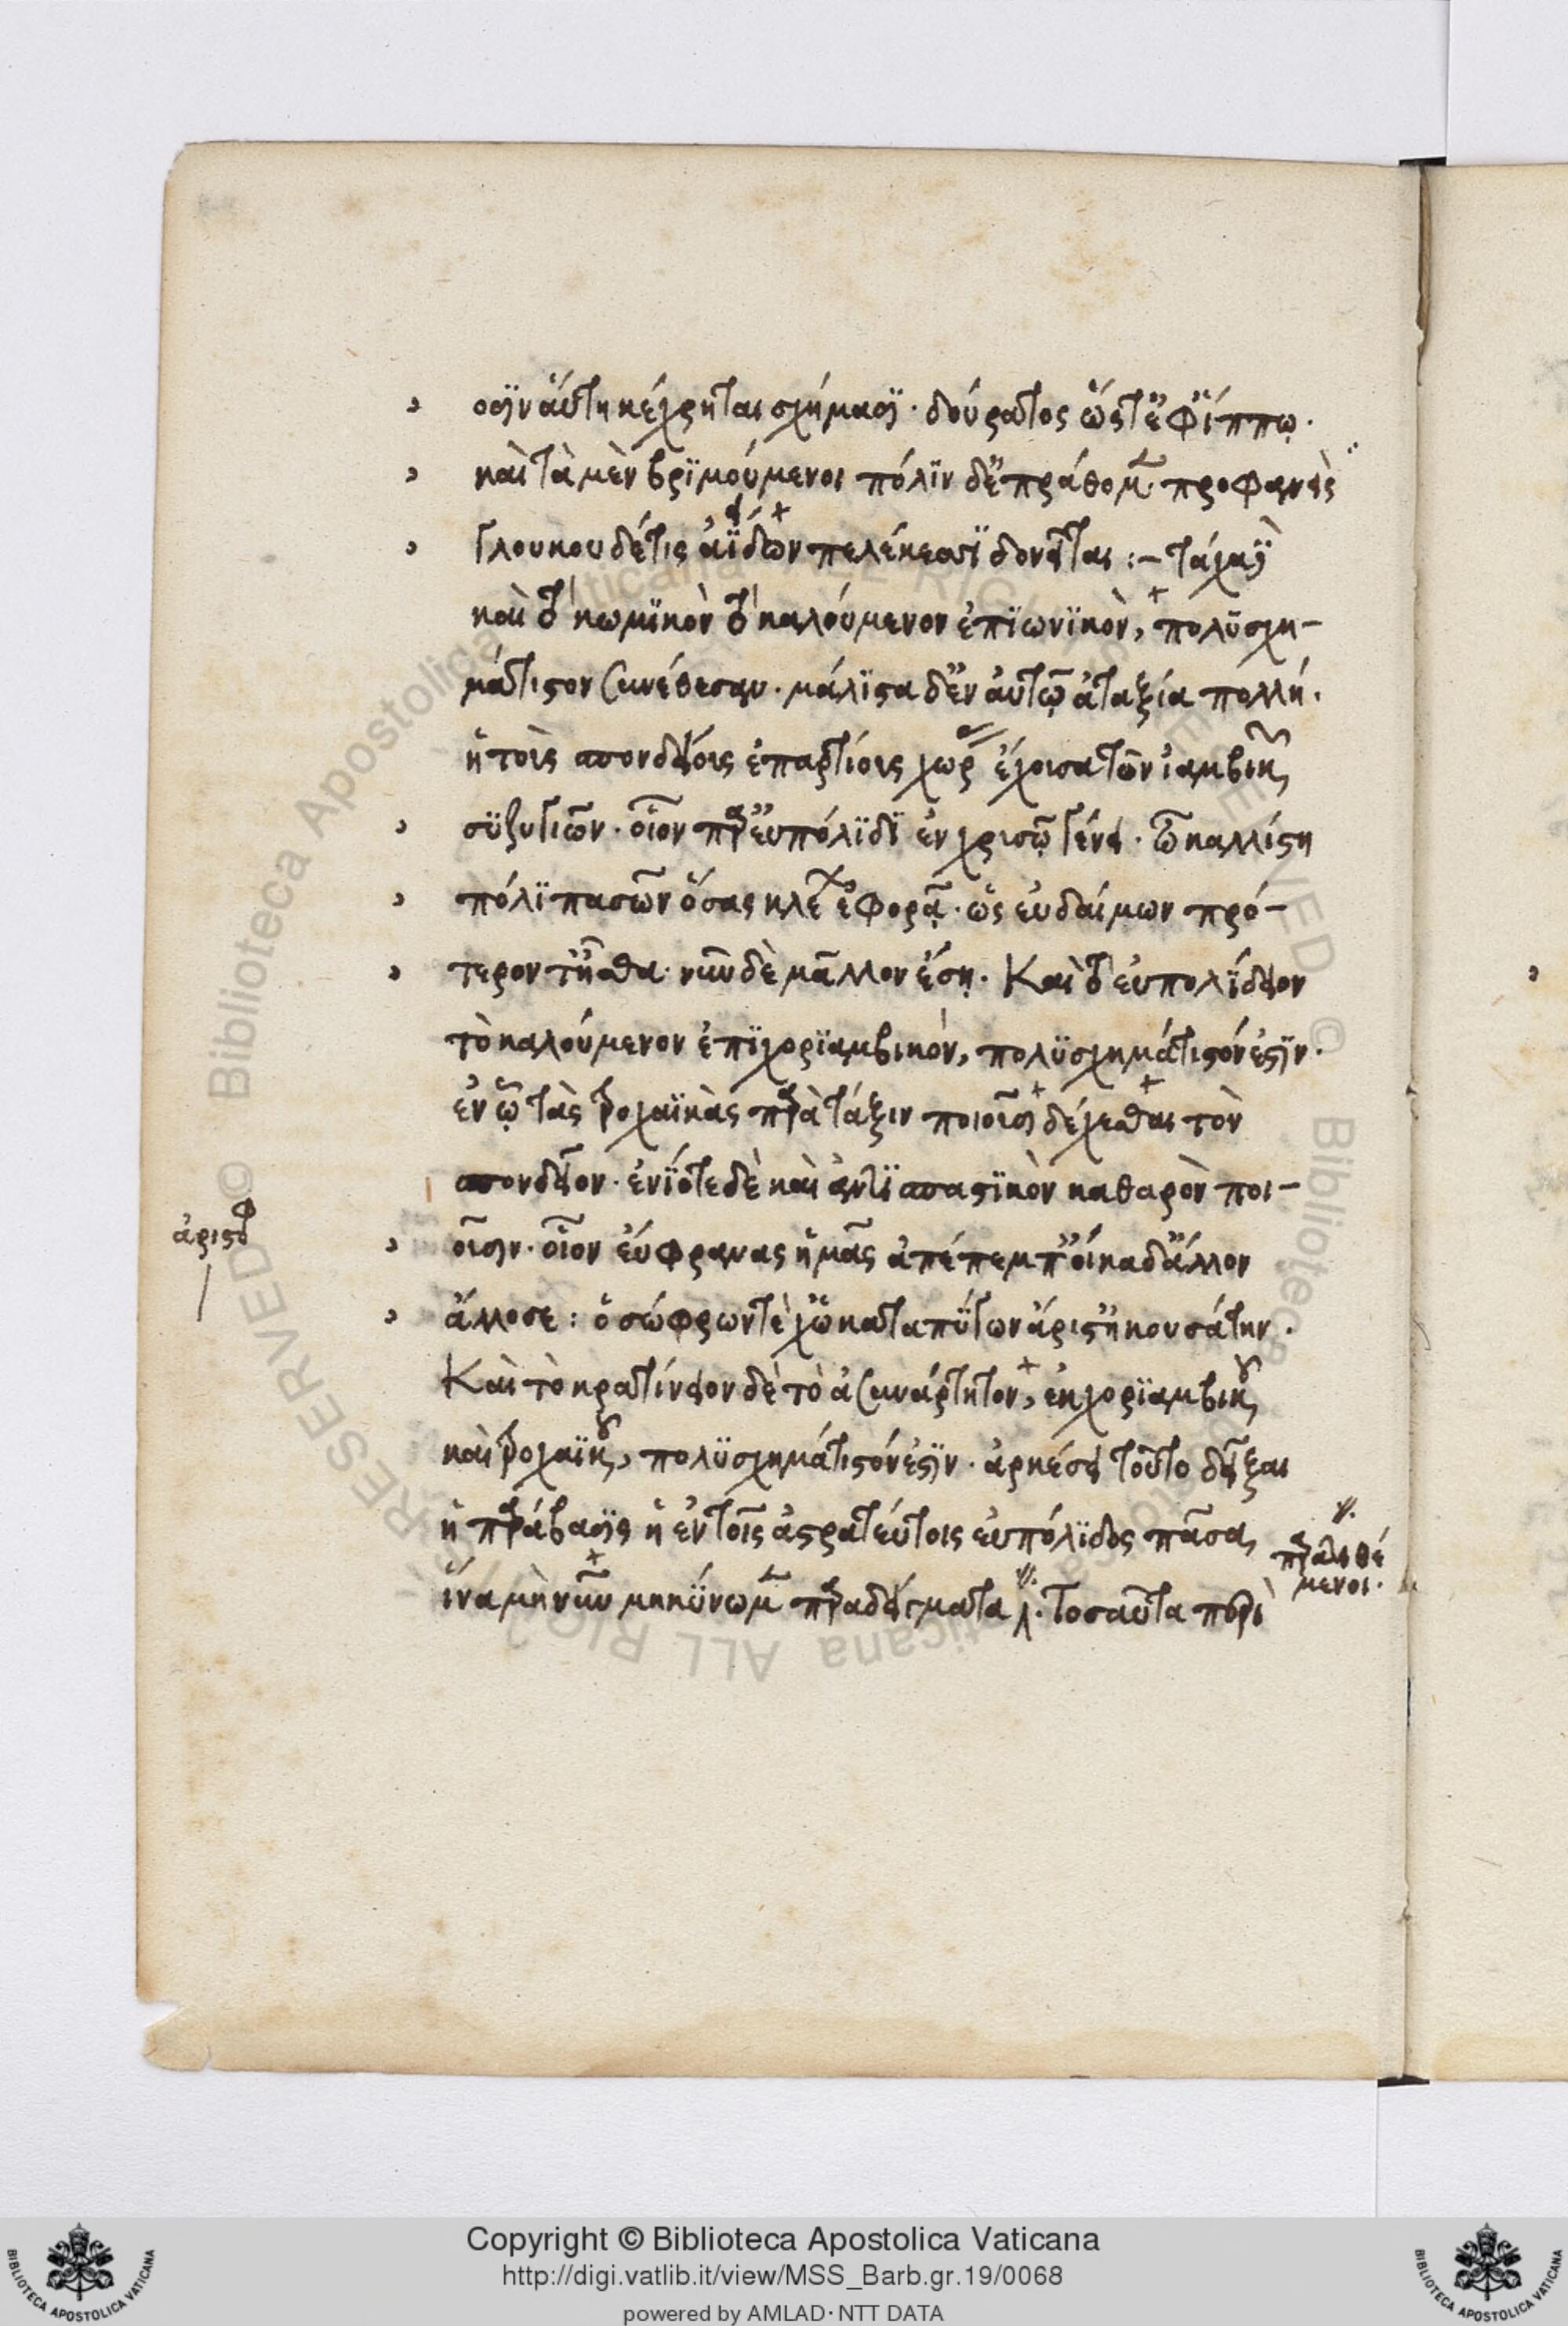 σϊν αὕτη κέχρηται σχήμασϊ· δούρατος ὥστ' ἐφ' ἵππῳ·
καὶ τὰ μὲν βρϊμούμενοι πόλϊν δ' ἐπράθομ̃· προφανεὶς
Γλουκου δέτις ἀϊδων πελέκεσϊ δονεῖται :– τάχασϊ
καὶ τὸ κωμϊκὸν τὸ καλούμενον ἐπϊωνϊκὸν, πολϋσχη–
μάτιστον συνέθεσαν· μάλϊστα δ' ἐν αὐτῷ ἀταξία πολλή·
ἡ τοῖς σπονδείοις ἐπαρτίοις χωρ έχοισα τῶν ἰαμβικῶν
σϋζυγιῶν· οἷον παρ' εὐπόλϊδϊ ἐν χρισῷ γένει· ὦ καλλίστη
πόλϊ πασῶν ὅσας κλε ἐφορᾷ· ὡς εὐδαίμων πρό–
τερον τ' ἦσθα· νῦν δὲ μᾶλλον ἔσῃ· Καὶ τὸ εὐπολϊδειον
τὸ καλούμενον ἐπϊχορϊαμβικόν, πολϋσχημάτιστόν ἐστϊν·
ἐν ᾧ τὰς τροχαϊκὰς παρὰ τάξιν ποιοῦσι δέχεσθαι τὸν
σπονδεῖον· ἐνϊότε δὲ καὶ ἀντϊσπαστϊκὸν καθαρὸν ποι–
οῦσιν· οἷον εὐφρανας ἡμᾶς ἀπέπεμπ' οἴκαδ' ἄλλον
ἀριστοφ
ἄλλοσε : ὁ σώφρων τὲ χὠ καταπϋγων ἄριστ' ἠκουσάτην·
Καὶ τὸ κρατίνειον δὲ τὸ ἀσυνάρτητον, ἐκ χορϊαμβικοῦ
καὶ τροχαϊκοῦ, πολϋσχημάτιστόν ἐστϊν· ἀρκέσει τοῦτο δεῖξαι
ἡ παράβασϊς ἡ ἐν τοῖς ἀστρατεύτοις εὐπόλϊδος πᾶσα,
ἵνα μὴ νῦν μηκϋνωμ̃ παραδείγματα λ· τοσαῦτα περὶ
παρατιθέ
μενοι·
Copyright © Biblioteca Apostolica Vaticana
http://digi.vatlib.it/view/MSS_Barb.gr.19/0068
powered by AMLAD · NTT DATA